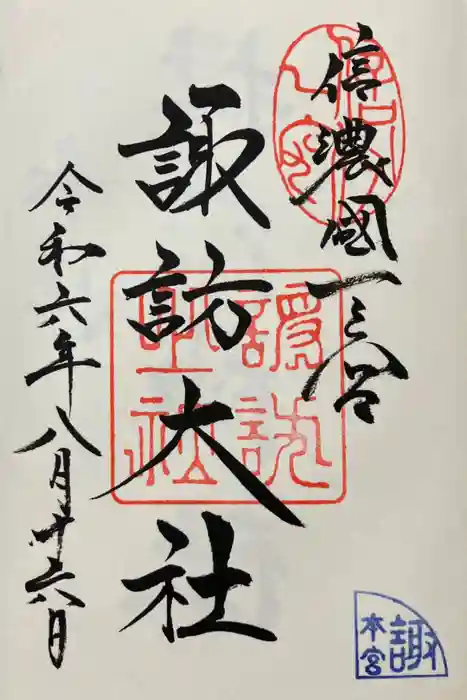 信濃國一之宮
諏訪大社
令和六年八月十六日
諏
本宮